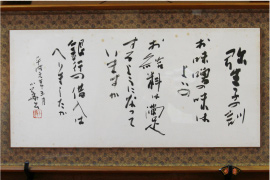 弥生子の訓
お味噌の味は
よいか
お給料は満足
するようになって
いますか
銀行の借入は
へりましたか